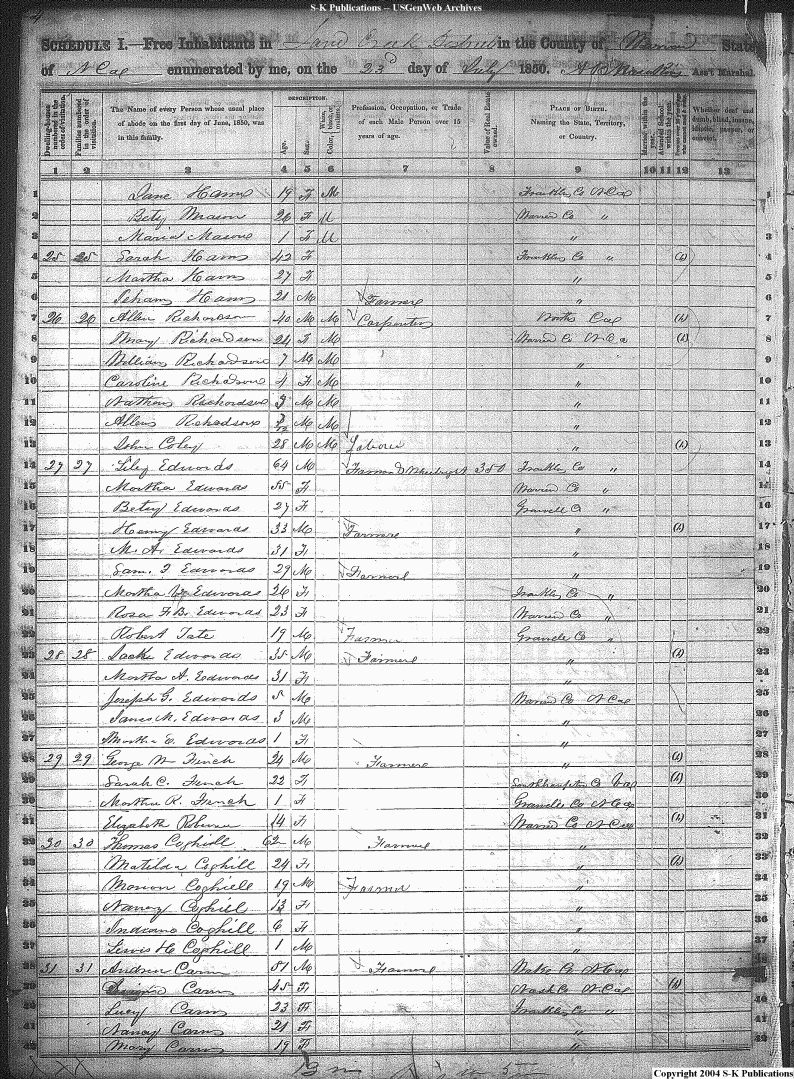 S-K Publications -- USGenWeb Archives
SCHEDULE I.—Free Inhabitants in Sand Creek District in the County of Warren State
of N Car enumerated by me, on the 23d day of July 1850. Ass't Marshal.
Dwelling-houses numbered in the order of visitation.
Families numbered in the order of visitation.
The Name of every Person whose usual place of abode on the first day of June, 1850, was in this family.
DESCRIPTION.
Age.
Sex.
Color, White, black, or mulatto.
Profession, Occupation, or Trade of each Male Person over 15 years of age.
Value of Real Estate owned.
PLACE OF BIRTH. Naming the State, Territory, or Country.
Married within the year.
Attended School within the year.
Whether deaf and dumb, blind, insane, idiotic, pauper, or convict.
1 2 3 4 5 6 7 8 9 10 11 12 13
1 Jane 19 F M Franklin Co N Car 1
2 Betsy Mason 26 F M Warren Co "
3 Maria Mason 1 F M " 3
4 25 25 Sarah 42 F Franklin Co " (1) 4
5 Martha 27 F " 5
6 21 M Farmer " 6
7 26 26 Allen Richardson 40 M M Carpenter North Car (1) 7
8 Mary Richardson 24 F M Warren Co N Ca (1) 8
9 William Richardson 7 M M " 9
10 Caroline Richardson 4 F M " 10
11 Nathan Richardson 3 M M " 11
12 Allen Richardson M M " 12
13 John Coley 28 M M Laborer " (1) 13
14 27 27 Edwards 64 M Farmer & Wheelwright 350 Franklin Co " 14
15 Martha Edwards 55 F Warren Co " 15
16 Betsy Edwards 27 F Granville Co " 16
17 Henry Edwards 33 M Farmer " (1) 17
18 M. A. Edwards 31 F " 18
19 Sam. T Edwards 29 M Farmer " 19
20 Martha Edwards 26 F Franklin Co " 20
21 Rosa F. B. Edwards 23 F Warren Co " 21
22 Robert Tate 19 M Farmer Granville Co " 22
23 28 28 Edwards 35 M Farmer " (1) 23
24 Martha A. Edwards 31 F " 24
25 Joseph G. Edwards 5 M Warren Co N Car 25
26 James M. Edwards 3 M " 26
27 Martha E. Edwards 1 F " 27
28 29 29 George W French 24 M Farmer " (1) 28
29 Sarah C. French 22 F Southampton Co Va (1) 29
30 Martha R. French 1 F Granville Co N Ca 30
31 Elizabeth 14 F Warren Co N Car (1) 31
32 30 30 Thomas Coghill 62 M Farmer " 32
33 Matilda Coghill 24 F " (1) 33
34 Marion Coghill 19 M Farmer " 34
35 Nancy Coghill 13 F " 35
36 Indiana Coghill 6 F " 36
37 Lewis H. Coghill 1 M " 37
38 31 31 Andrew 51 M Farmer Wake Co N Car 38
39 45 F Nash Co N Car (1) 39
40 Lucy 23 F Franklin Co " 40
41 Nancy 21 F " 41
42 Mary 19 F " 42
Copyright 2004 S-K Publications